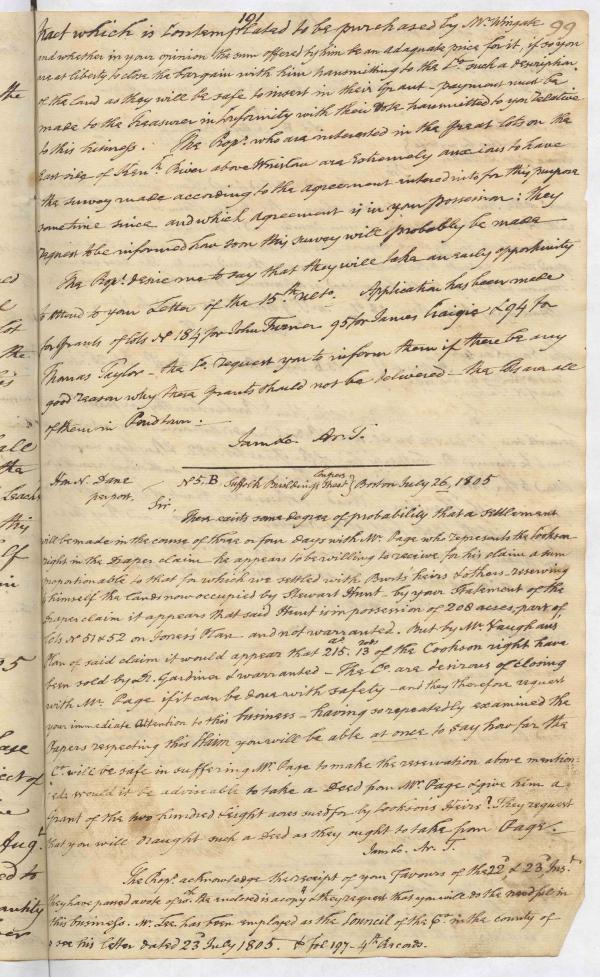 191
99
tract which is contemplated to be purchased by Mr. Wingate
and whether in your opinion the sum offered by him be an adequate price for it, if so you
are at liberty to close the bargain with him transmitting to the Co. such a description
of the land as they will be safe to insert in their Grant - payment must be
made to the Treasurer in conformity with their Vote transmitted to you relative
to this business. The Propr. who are interested in the great lots on the
East side of Kenk. River above Winslow are extremely anxious to have
the survey made according to the agreement entered into for this purpose
sometime since and which agreement is in your possession: They
request to be informed how soon this survey will probably be made
The Propr. desire me to say that they will take an early opportunity
to attend to your Letter of the 15th ulto. Application has been made
for Grants of lots No. 184 for John Turner 95 for James Craigie & 94 for
Thomas Taylor - the Co. request you to inform them if there be any
good reason why these grants should not be delivered - the lots are all
of them in
I am &c. Ar. T.
Hon. N. Dane
per post.
No 5. B. Suffolk Buildings Congress Street } Boston July 26, 1805
Sir,
There exists some degree of probability that a settlement
will be made in the course of three or four days with Mr. Page who represents the Cookson
right in the Draper claim he appears to be willing to receive for his claim a sum
proportionable to that for which we settled with heirs & others - reserving
to himself the lands now occupied by Stewart Hunt - by your Statement of the
Draper claim it appears that said Hunt is in possession of 208 acres, part of
lots No 51 & 52 on Jones's Plan - and not warranted. But by Mr. Vaughan's
Plan of said claim it would appear that 215 as. 13 rods of the Cookson right have
been sold by Gardiner & warranted - The Co. are desirous of closing
with Mr. Page if it can be done with safety - and they therefore request
your immediate attention to this business - having so repeatedly examined the
Papers respecting this Claim you will be able at once to say how far the
Co. will be safe in suffering Mr. Page to make the reservation above mention-
ed. would it be adviseable to take a Deed from Mr. Page & give him a
grant of the two hundred & eight acres sued for by Cookson's Heirs? They request
that you will draught such a Deed as they ought to take from Page.
I am &c. Ar. T.
The Propr. acknowledge the receipt of your favours of the 22d & 23d Inst.
they have passed a vote of wh. the enclosed is a copy & they request that you will do the needful in
this business. Mr. Lee has been employed as the Council of the Co. in the county of
see his letter dated 23d July 1805. fol 197 - 4th Records.